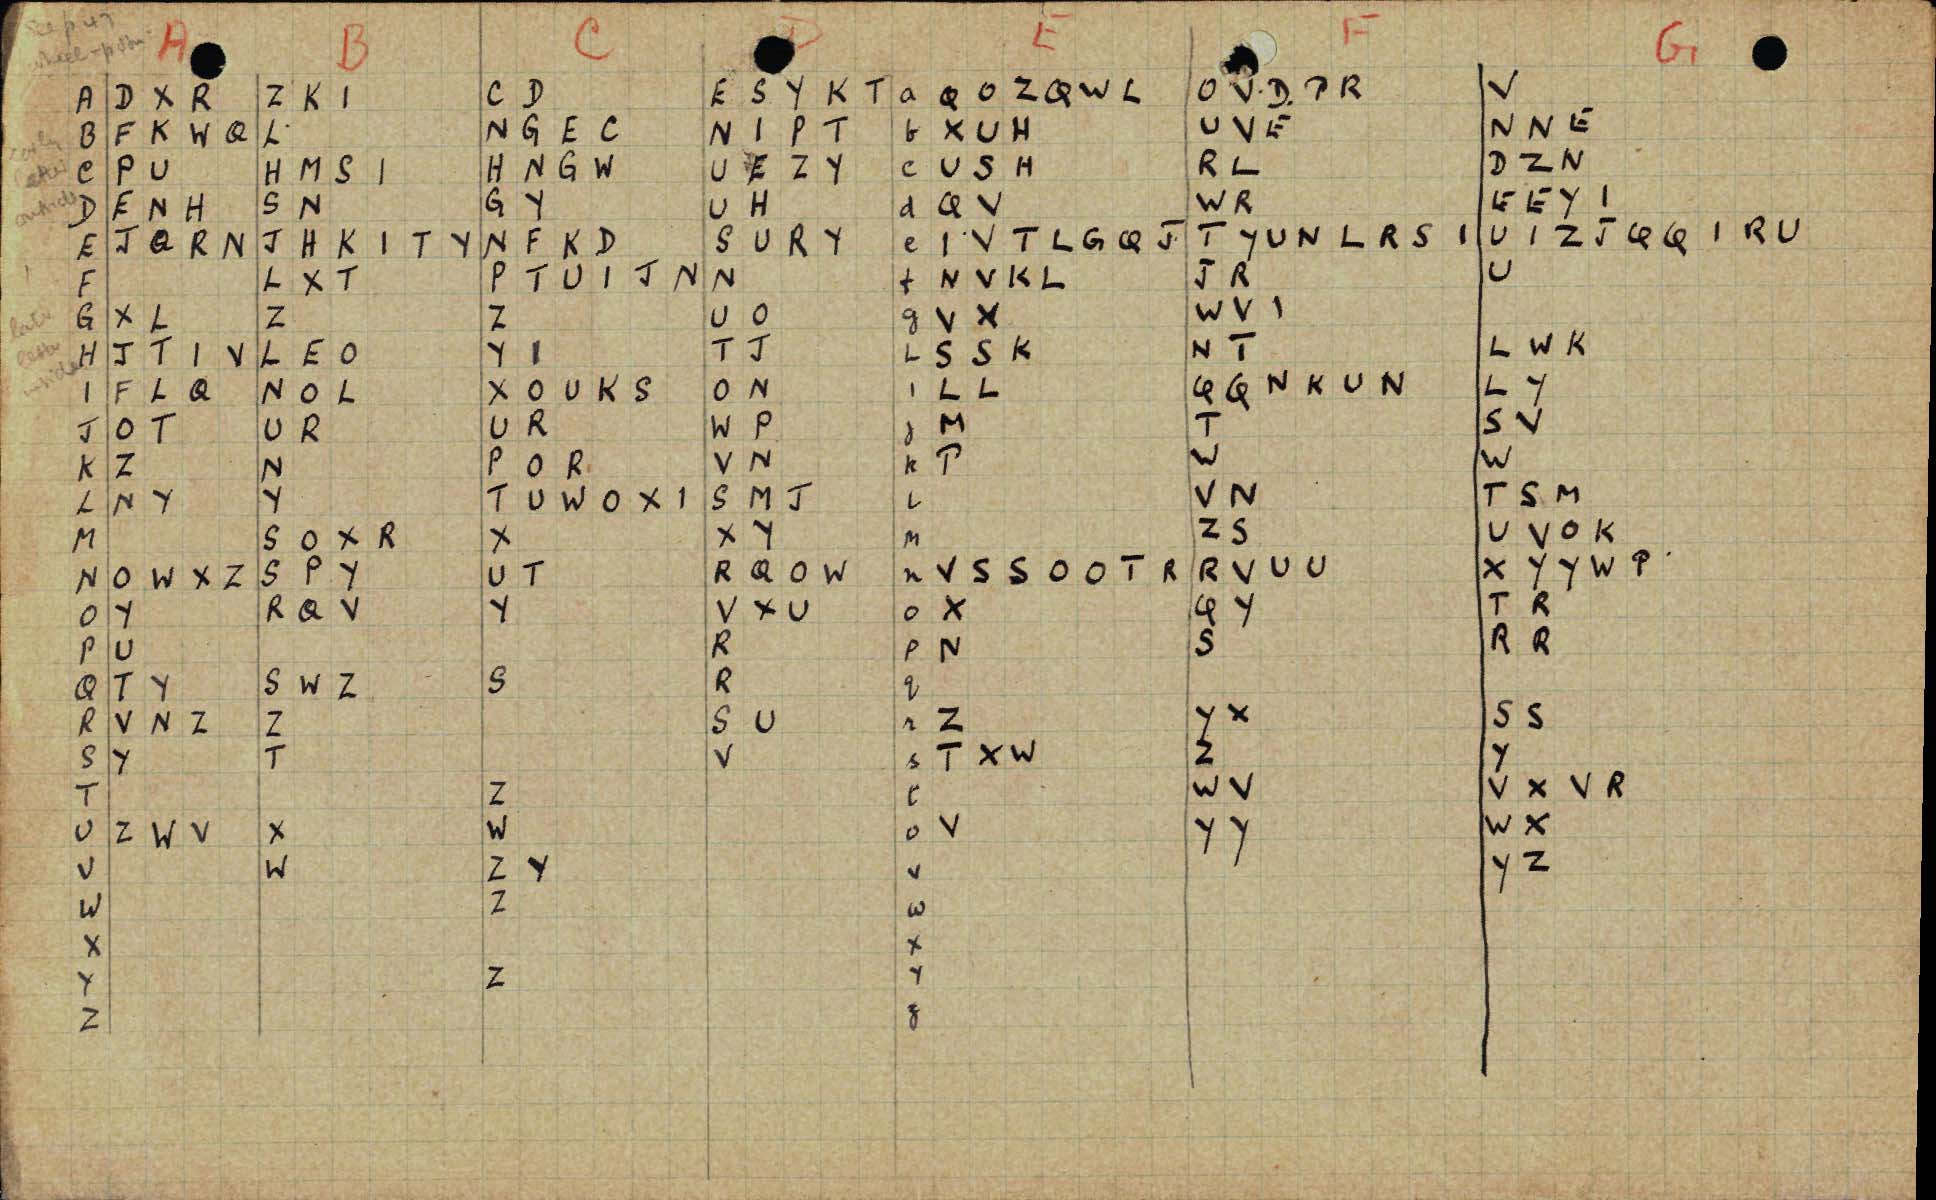 See p 47
wheel-posn.
A B C D E F G
A D X R Z K I C D E S Y K T a Q O Z Q W L O V. D. P R V
B F K W Q L N G E C N I P T b X U H U V E N N E
C P U H M S I H N G W U E Z Y c U S H R L D Z N
D E N H S N G Y U H d Q V W R E E Y I
E J Q R N J H K I T Y N F K D S U R Y e I V T L G Q J T Y U N L R S I U I Z J Q Q I R U
F L X T P T U I J N N f N V K L J R U
G X L Z Z U O g V X W V I
H J T I V L E O Y I T J h S S K N T L W K
I F L Q N O L X O U K S O N i L L Q Q N K U N L Y
J O T U R U R W P j M T S V
K Z N P O R V N k P W W
L N Y Y T U W O X I S M J l V N T S M
M S O X R X X Y m Z S U V O K
N O W X Z S P Y U T R Q O W n V S S O O T R R V U U X Y Y W P
O Y R Q V Y V X U o X Q Y T R
P U R p N S R R
Q T Y S W Z S R q
R V N Z Z S U r Z Y X S S
S Y T V s T X W Z Y
T Z t W V V X V R
U Z W V X W o V Y Y W X
V W Z Y v Y Z
W Z w
X x
Y Z y
Z z